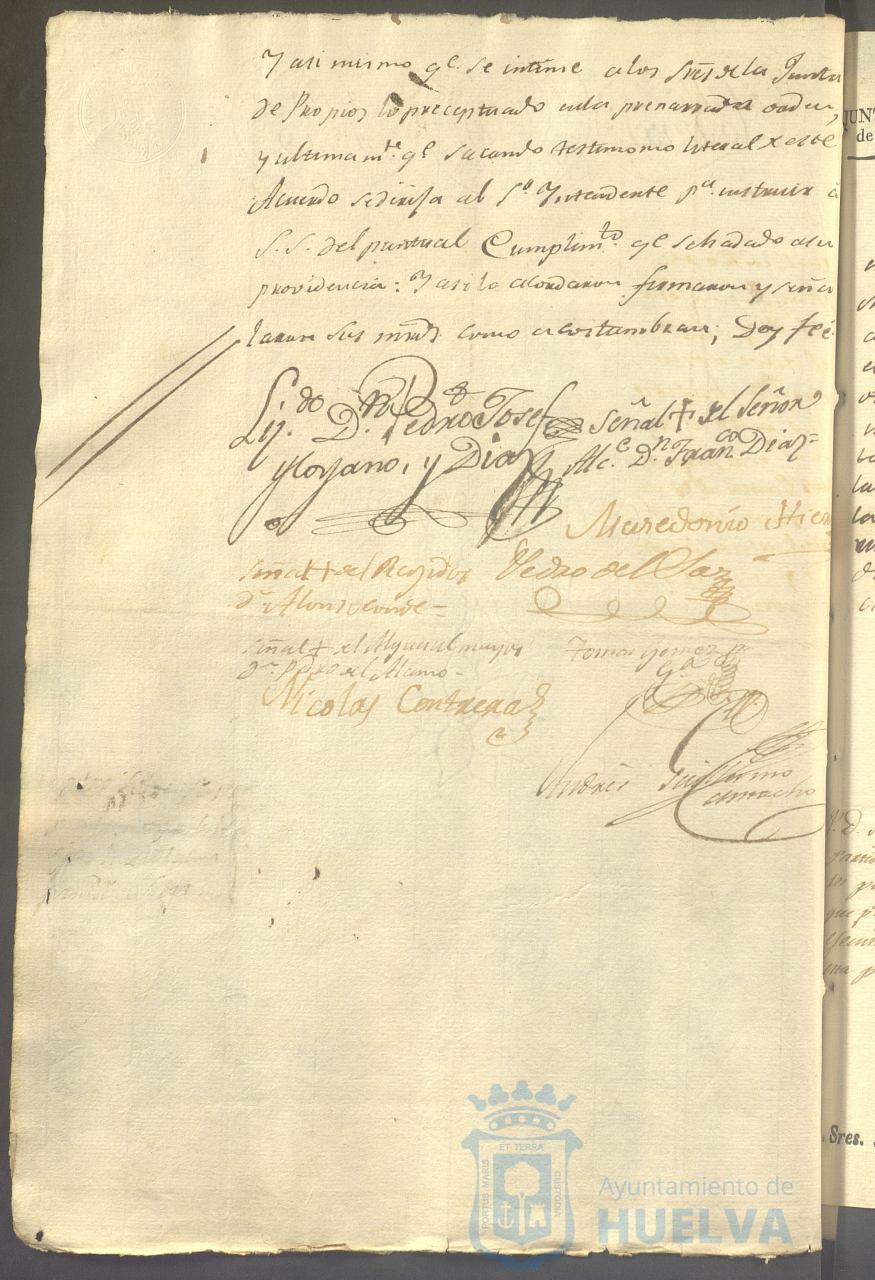 Y asi mismo qe. se intíme a los Sres. de la Junta
de Propios lo preceptuado en la prenarrada orden,
y ultimamte. qe. sacando testimonio literal de este
Acuerdo se dirija al Sor. Yntendente pa. instruir a
S. S. del puntual Cumplimto. qe. se ha dado a su
providencia: Y asi lo acordaron firmaron y seña
laron sus mrds. como acostumbran; Doy feé
Lizdo. Dn. Pedro Josef
y Lozano, y Diaz
Señal + del Señor
Alce. Dn. Franco. Diaz =
Macedonio
Señal + del Regidor
Dn. Alonso Conde =
Pedro del Saz
Señal + del Alguacil mayor
Dn. Pedro del Alamo =
Tomas Gomez
Ga.
Nicolas Contreras
Andres Guillermo
Camacho
JUNT
de
Sres.
PORTUS MARIS
ET TERRÆ
CUSTODIA
Ayuntamiento de
HUELVA